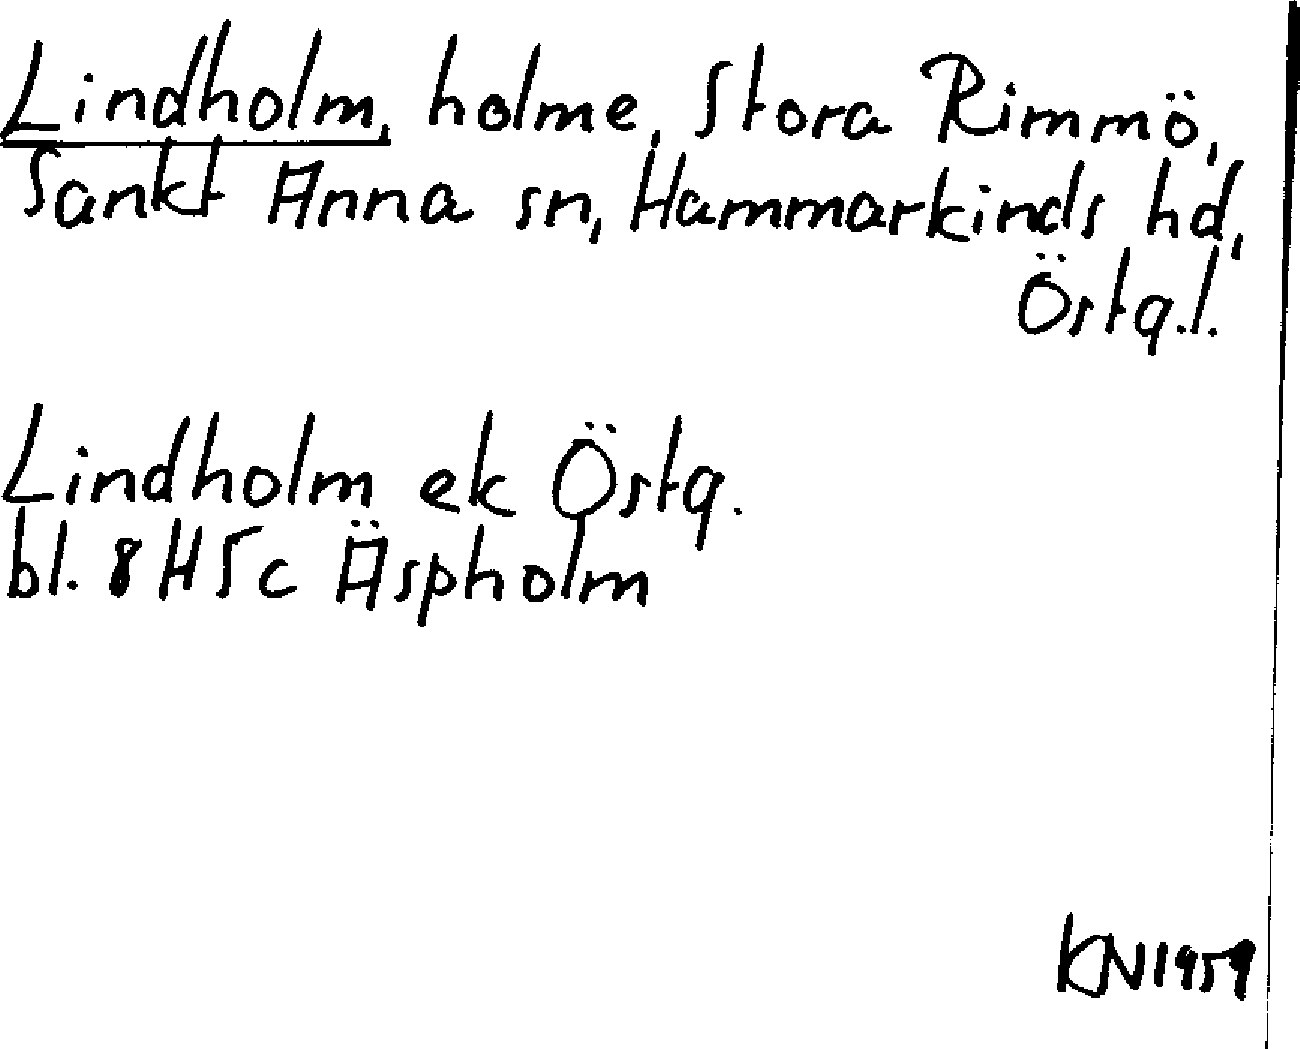 Lindholm, holme, Stora Rimmö,
Sankt Anna sn, Hammarkinds hd,
Östg.l.
Lindholm ek Östg.
bl. 8H5c Äspholm
KN1959